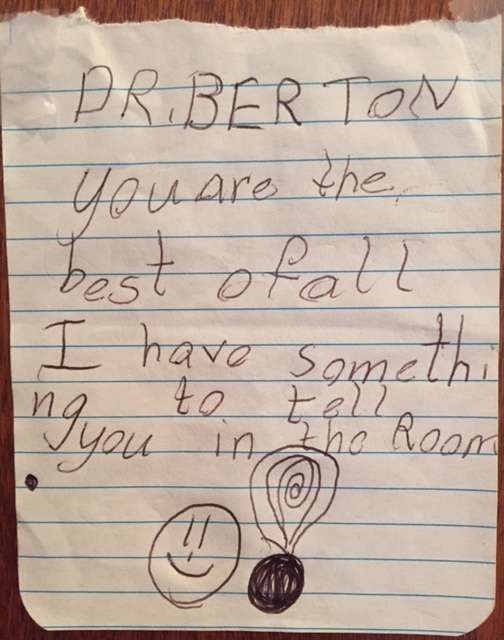 DR. BERTON
you are the
best of all
I have somethi
ng to tell
you in the Room
.